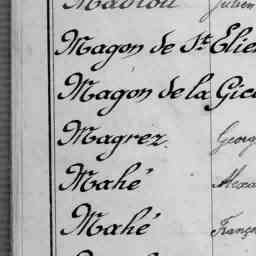 Madiou Julien
Magon de St. Elie
Magon de la Gic
Magrez Georg
Mahé Alexa
Mahé Franç